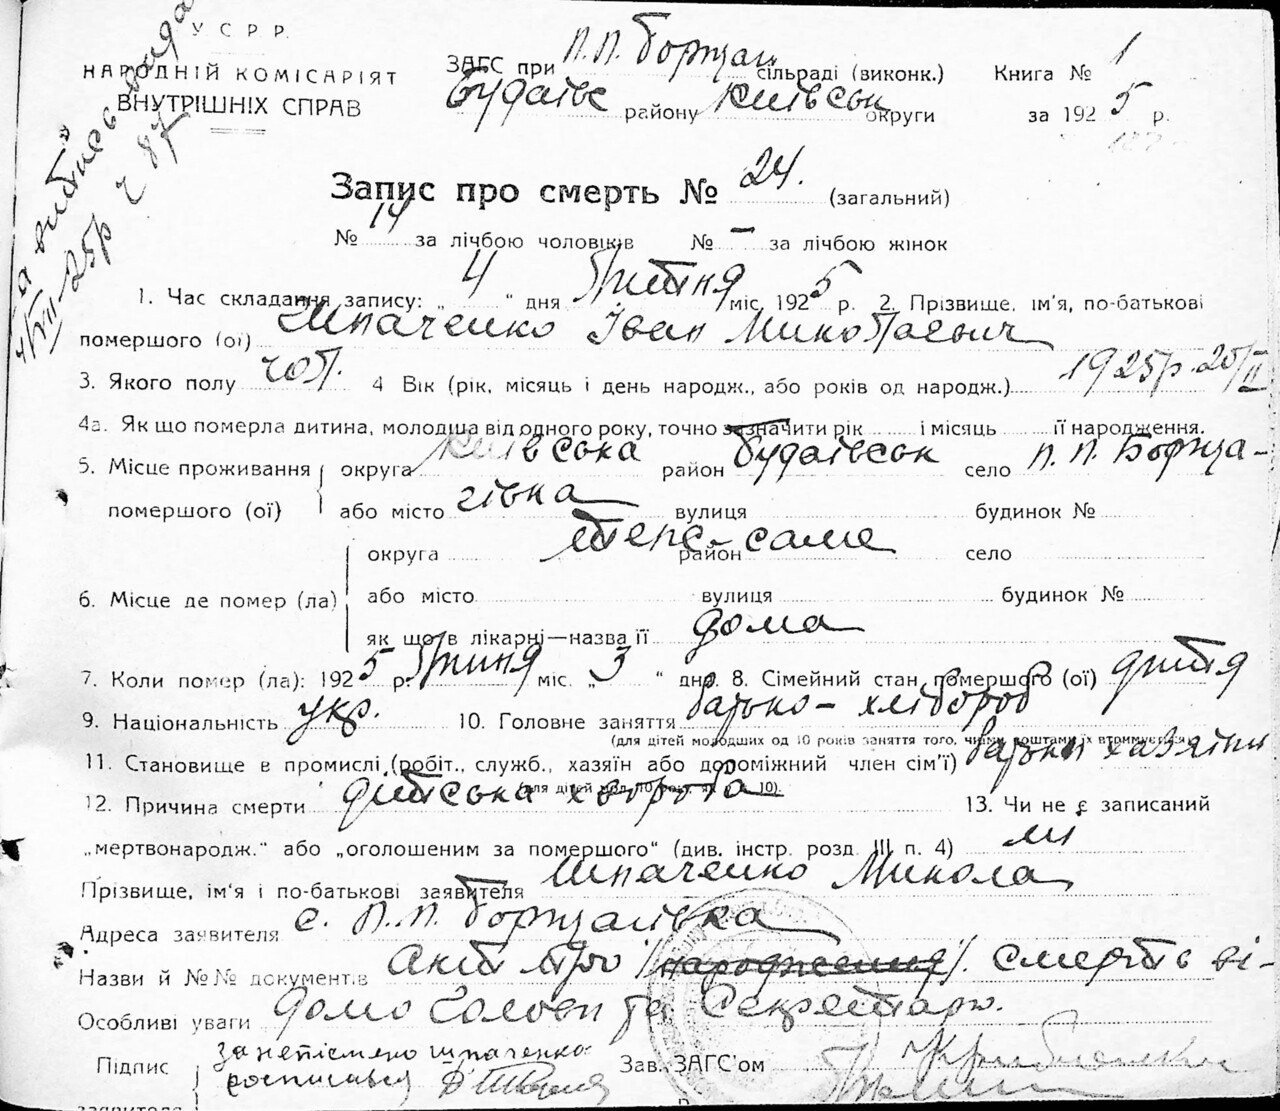 У С Р Р.
НАРОДНІЙ КОМІСАРІЯТ
ВНУТРІШНІХ СПРАВ
ЗАГС при П.П. Борщаг сільраді (виконк.) Книга № 1
Будаівс району Київськ округи за 1925 р.
Запис про смерть № 24. (загальний)
№ 14 за лічбою чоловіків № – за лічбою жінок
1. Час складання запису: „ 4 “ дня Липня міс. 1925 р. 2. Прізвище, ім'я, по-батькові
помершого (ої) Шпаченко Іван Миколаевич
3. Якого полу чол. 4 Вік (рік, місяць і день народж., або років од народж.) 1925р 20/II
4а. Як що померла дитина, молодша від одного року, точно зазначити рік і місяць її народження.
5. Місце проживання округа Київська район Будаівськ село П.П. Борща-
помершого (ої) або місто гівка вулиця будинок №
округа теж-саме район село
6. Місце де помер (ла) або місто вулиця будинок №
як що в лікарні—назва її дома
7. Коли помер (ла): 1925 р. Липня міс. „ 3 “ дня. 8. Сімейний стан помершого (ої) дитя
9. Національність укр. 10. Головне заняття батько – хлібороб
(для дітей молодших од 10 років заняття того, чиїми коштами їх втримується)
11. Становище в промислі (робіт., служб., хазяїн або допоміжний член сім'ї) батьки хазяіни
12. Причина смерти дитська хвороба 13. Чи не є записаний
„мертвонародж.“ або „оголошеним за помершого“ (див. інстр. розд. III п. 4) ні
Прізвище, ім'я і по-батькові заявителя Шпаченко Микола
Адреса заявителя с. П.П. Борщагівка
Назви й №№ документів Акт про /народження/. смерть ві-
Особливі уваги домо Голови та Секретарю.
Підпис за неписьмено Шпаченко Зав. ЗАГС'ом
росписався
заявителя